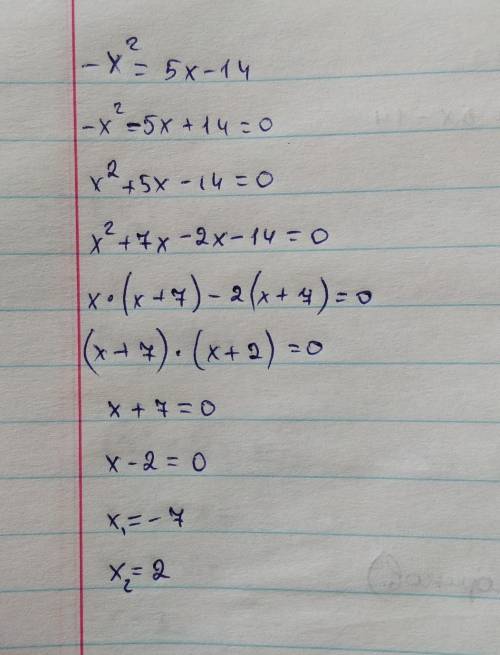 -x² = 5x-14
-x²-5x+14=0
x²+5x-14=0
x²+7x-2x-14=0
x·(x+7)-2(x+7)=0
(x+7)·(x+2)=0
x+7=0
x-2=0
x₁=-7
x₂=2